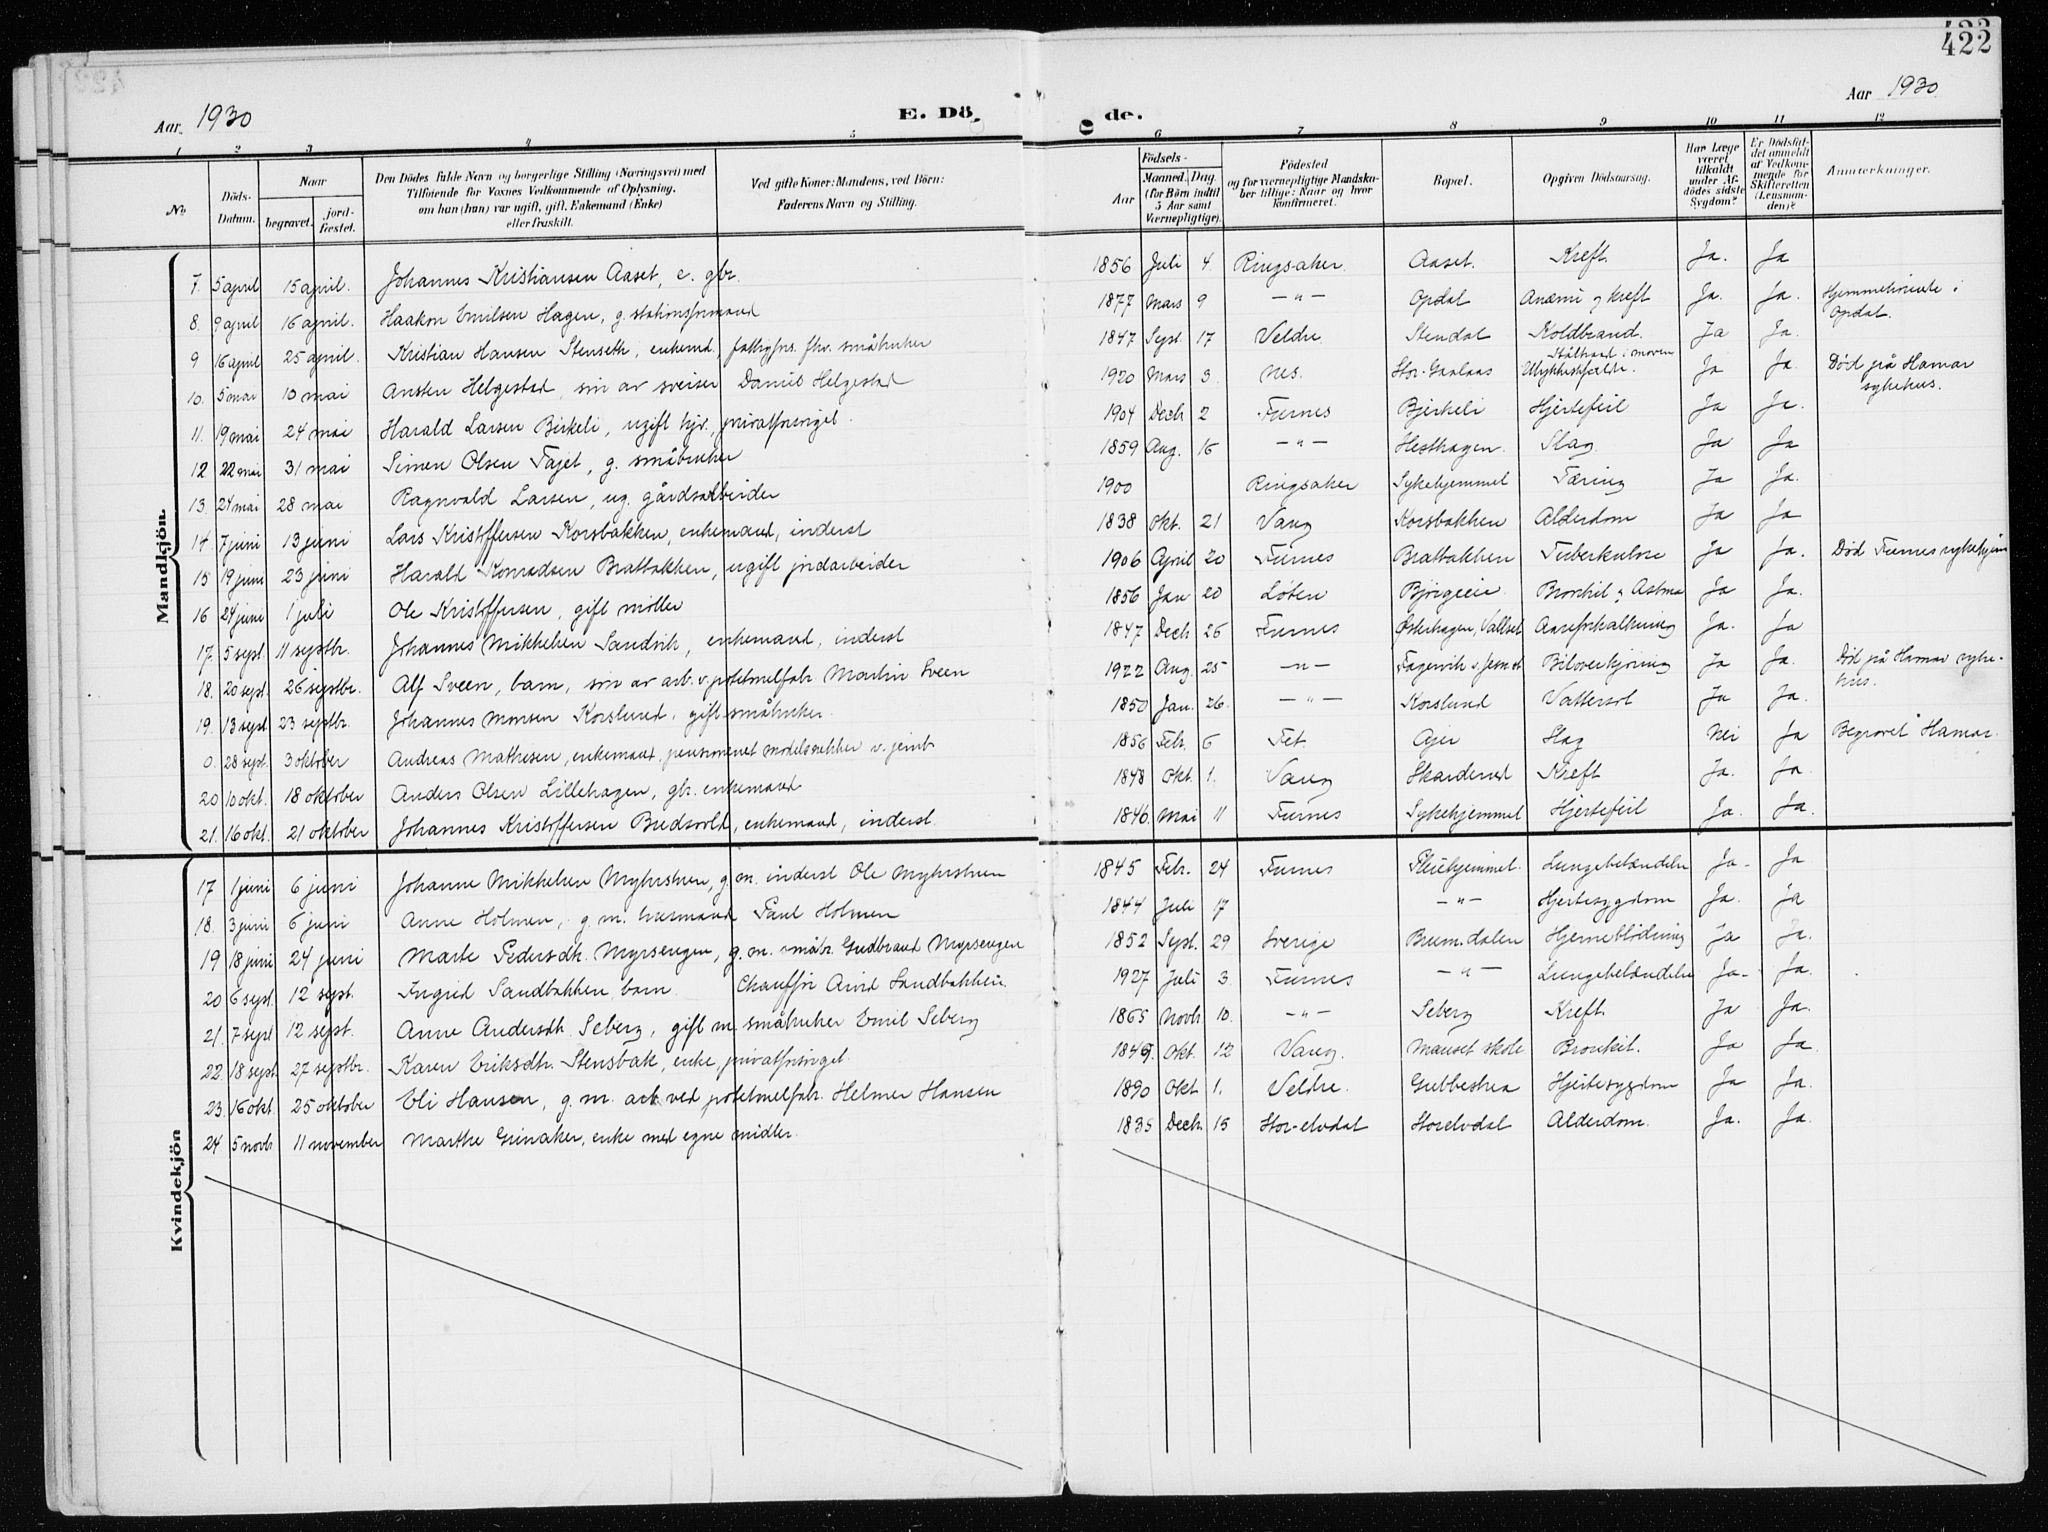 422
Aar 1930
E. Dö de.
Aar 1930
1 2 3 4 5 6 7 8 9 10 11 12
No
Döds-Datum.
Naar begravet. jordfæstet.
Den Dödes fulde Navn og borgerlige Stilling (Næringsvei) med Tilföiende for Voxnes Vedkommende af Oplysning, om han (hun) var ugift, gift, Enkemand (Enke) eller fraskilt.
Ved gifte Koner: Mandens, ved Börn: Faderens Navn og Stilling.
Födsels-
Aar Maaned. Dag. (for Börn indtil 5 Aar samt Værnepligtige).
Födested og for værnepligtige Mandskaber tillige: Naar og hvor konfirmeret.
Bopæl.
Opgiven Dödsaarsag.
Har Læge været tilkaldt under Afdödes sidste Sygdom?
Er Dödsfaldet anmeldt af Vedkommende for Skifteretten (Lensmanden)?
Anmerkninger.
Mandkjön.
7. 5 april 15 april. Johannes Kristiansen Aaset, e. gbr. 1856 Juli 4. Ringsaker. Aaset. Kreft Ja. Ja
8. 9 april 16 april. Haakon Emilsen Hagen, g. stationsformand 1877 Mars 9 —"— Opdal Anæmi og kreft Ja. Ja. Hjemmehörende i Opdal.
9 16 april 25 april. Kristian Hansen Stenseth, enkemd, fattigfors. fhv. småbruker 1847 Sept. 17 Veldre Stendal Koldbrand. Ja Ja.
10. 5 mai 10 mai Ansten Helgestad, sön av sveiser Daniel Helgestad 1920 Mars 3. Nes. Stor-Gaalaas Ulykkestilfælde. Ståltraad i maven Ja Ja. Död på Hamar sykehus.
11. 19 mai 24 mai Harald Larsen Birkeli, ugift hjv., privatforsörget. 1904 Decb 2 Furnes Bjerkeli Hjertefeil Ja Ja.
12 22 mai 31 mai Simen Olsen Fajet, g. småbruker 1859 Aug. 16 —"— Hesthagen. Slag Ja Ja
13. 24 mai 28 mai Ragnvald Larsen, ug. gårdsarbeider 1900 Ringsaker Sykehjemmet Tæring Ja Ja.
14. 7 juni 13 juni Lars Kristoffersen Korsbakken, enkemand, inderst 1838 Okt. 21 Vang Korsbakken Alderdom Ja Ja
15 19 juni 23 juni Harald Konradsen Bratbakken, ugift jordarbeider 1906 April 20 Furnes Bratbakken Tuberkulose Ja Ja. Död Furnes sykehjem
16 24 juni 1 juli Ole Kristoffersen, gift möller 1856 Jan 20 Löten Björgeie Bronkit og Astma Ja Ja.
17. 5 sept. 11 septbr. Johannes Mikkelsen Sandvik, enkemand, inderst 1847 Decb 26 Furnes Österhagen, Vallset Aareforkalkning Ja. Ja
18. 20 sept. 26 septbr. Alf Sveen, barn, sön av arb. v. potetmelfabr. Martin Sveen 1922 Aug. 25 —"— Fagervik v. Jesnes Biloverkjöring Ja Ja. Död på Hamar sykehus.
19. 13 sept 23 septbr. Johannes Monsen Korslund, gift småbruker. 1850 Jan. 26. —"— Korslund Vattersot Ja Ja.
0. 28 sept. 3 oktober Andreas Mathesen, enkemand, pensioneret modelsnekker v. jernb. 1856 Febr. 6 Fet. Ajer Slag Nei Ja Begravet Hamar.
20 10 okt. 18 oktober Anders Olsen Lillehagen, gbr. enkemand 1848 Okt. 1. Vang Skarderud Kreft Ja. Ja.
21. 16 okt. 21 oktober Johannes Kristoffersen Bredsvold, enkemand, inderst. 1846 Mai 11 Furnes Sykehjemmet Hjertefeil Ja. Ja.
Kvindekjön
17 1 juni 6 juni Johanne Mikkelsen Myhrstuen, g. m. inderst Ole Myhrstuen 1845 Febr. 24 Furnes Pleiehjemmet. Lungebetændelse Ja. Ja
18. 3 juni 6 juni Anne Holmen, g. m. husmand Paul Holmen 1844 Juli 17 —"— Hjertesygdom Ja. Ja
19 18 juni 24 juni Marte Pedersdt. Myrsengen, g. m. småbr. Gudbrand Myrsengen 1852 Sept. 29 Sverige Brumdalen Hjerneblödning Ja Ja.
20 6 sept. 12 sept. Ingrid Sandbakken, barn. Chaufför Arvid Sandbakken. 1927 Juli 3. Furnes —"— Lungebetændelse Ja. Ja.
21. 7 sept 12 sept. Anne Andersdt. Seberg, gift m. småbruker Emil Seberg 1865 Novb 10. —"— Seberg Kreft. Ja Ja.
22. 18 sept. 27 septbr. Karen Eriksdtr. Stensbak, enke, privatforsörget. 1849. Okt. 12 Vang. Mauset skole Bronkit. Ja Ja.
23. 16 okt. 25 oktober Eli Hansen, g. m. arb ved potetmelfabr. Helmer Hansen 1890 Okt 1. Veldre. Gubbestua Hjertesygdom Ja Ja.
24 5 novb 11 november Marthe Grinaker, enke med egne midler. 1835 Decb. 15 Stor-elvdal Storelvdal Alderdom. Ja. Ja.